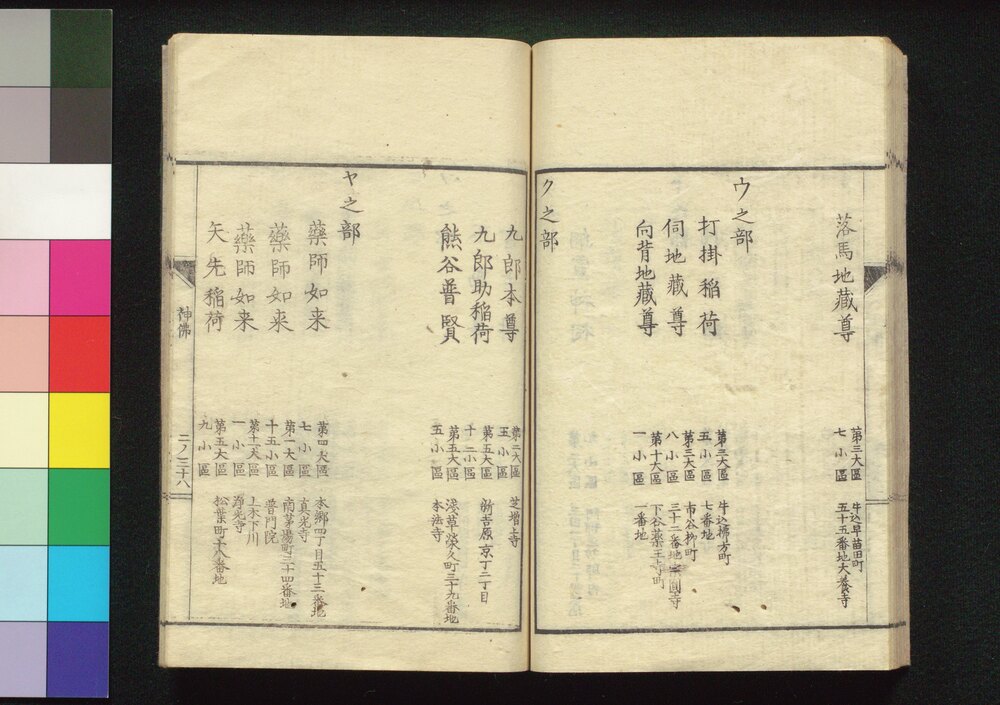 落馬地藏尊
第三大區
七小區
牛込早苗田町
五十五番地大養寺
ウ之部
打掛稲荷
第三大區
五小區
牛込拂方町
七番地
伺地藏尊
第三大區
八小區
市谷柳町
三十二番地宗圓寺
向背地藏尊
第十大區
一小區
下谷藥王寺町
一番地
ク之部
九郎本尊
第二大區
五小區
芝增上寺
九郎助稲荷
第五大區
十二小區
新吉原京丁二丁目
熊谷普賢
第五大區
五小區
淺草榮久町三十九番地
本法寺
ヤ之部
藥師如来
第四大區
七小區
本郷四丁目五十三番地
真光寺
藥師如来
第一大區
十五小區
南茅場町三十四番地
普門院
藥師如来
第十一大區
一小區
上木下川
淨光寺
矢先稲荷
第五大區
九小區
松葉町十八番地
神佛
二ノ三十八